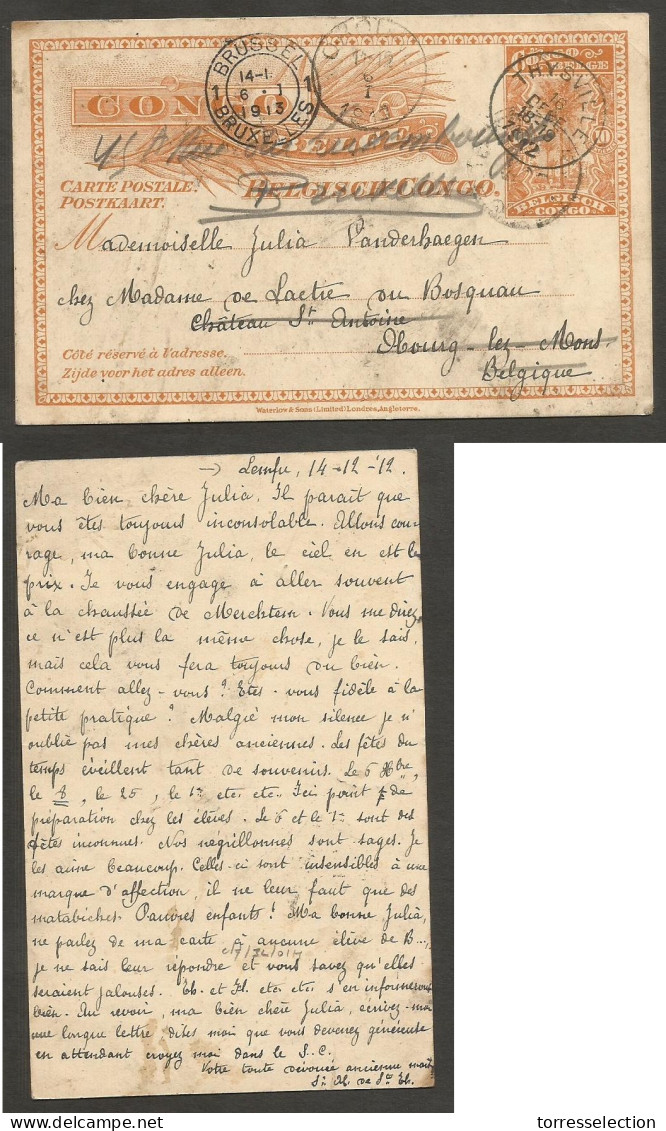 CONGO BELGE
THYSVILLE
BRUSSEL
14-1
1 6 . 1 1
1913
BRUXELLES
CONGO
BELGE
45A Rue du Luxembourg
Bruxelles
CARTE POSTALE.
POSTKAART.
BELGISCH CONGO.
BELGISCH CONGO
Mademoiselle Julia Vanderhaegen
chez Madame De Lactre du Bosquau
Château St Antoine
Obourg-lez-Mons.
Belgique
Côté réservé à l'adresse.
Zijde voor het adres alleen.
Waterlow & Sons (Limited) Londres, Angleterre.
→ Lemfu, 14-12-'12.
Ma bien chère Julia. Il parait que
vous êtes toujours inconsolable. Allons cou-
rage, ma bonne Julia, le ciel en est le
prix. Je vous engage à aller souvent
à la chaussée de Merchtem. Vous me direz
ce n'est plus la même chose, je le sais,
mais cela vous fera toujours du bien.
Comment allez-vous? Etes-vous fidèle à la
petite pratique? Malgré mon silence je n'
oublie pas mes chères anciennes. Les fêtes du
temps éveillent tant de souvenirs. Le 6 Xbre,
le 8, le 25, le 1r etc. etc. Ici point de
préparation chez les élèves. Le 6 et le 1r sont des
fêtes inconnues. Nos négrillonnes sont sages. Je
les aime beaucoup. Celles-ci sont insensibles à une
marque d'affection, il ne leur faut que des
matabiches. Pauvres enfants! Ma bonne Julia,
ne parlez de ma carte à aucune élève de B...,
je ne sais leur répondre et vous savez qu'elles
seraient jalouses. Eh. et H. etc. etc. s'en informeront
bien. Au revoir, ma bien chère Julia, écrivez-moi
une longue lettre, dites moi que vous devenez généreuse
en attendant croyez moi dans le S.C.
Votre toute dévouée ancienne mait.
Sr. M. de Ste Eh.
torresselection